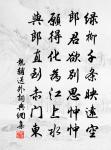 綠柳千条映遠空
郎君欲別思忡忡
願得化為江上水
與郎直到赤門東
龍輔送外詞典網集